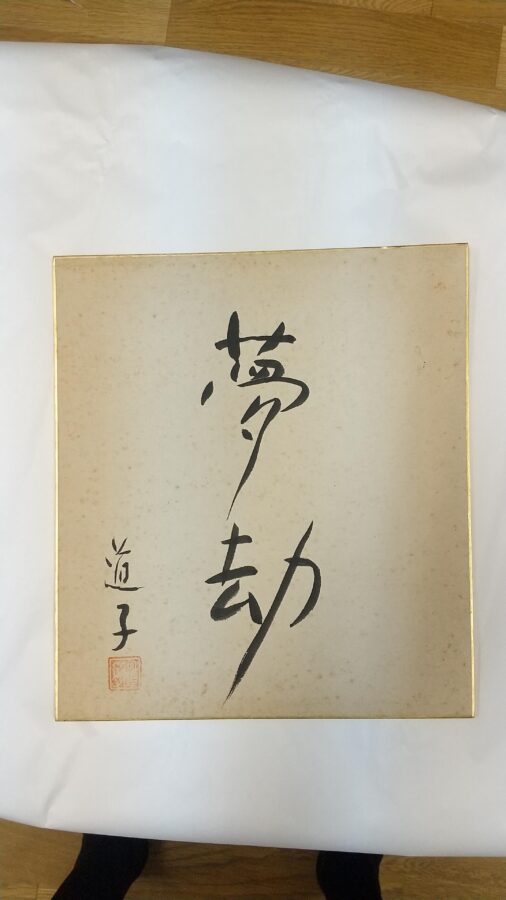 夢劫
道子